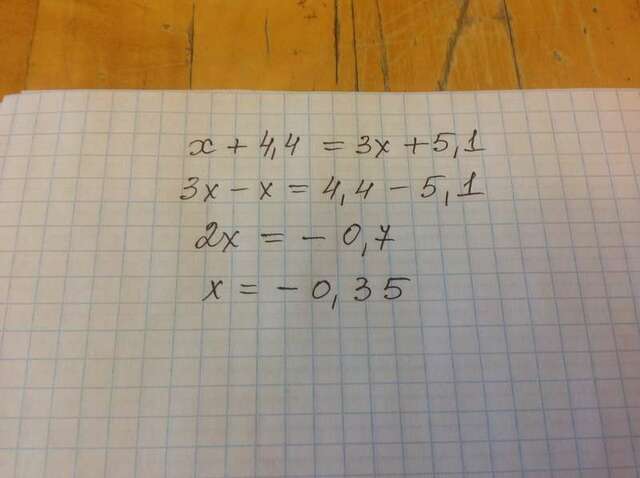 x + 4,4 = 3x + 5,1
3x - x = 4,4 - 5,1
2x = - 0,7
x = - 0,35